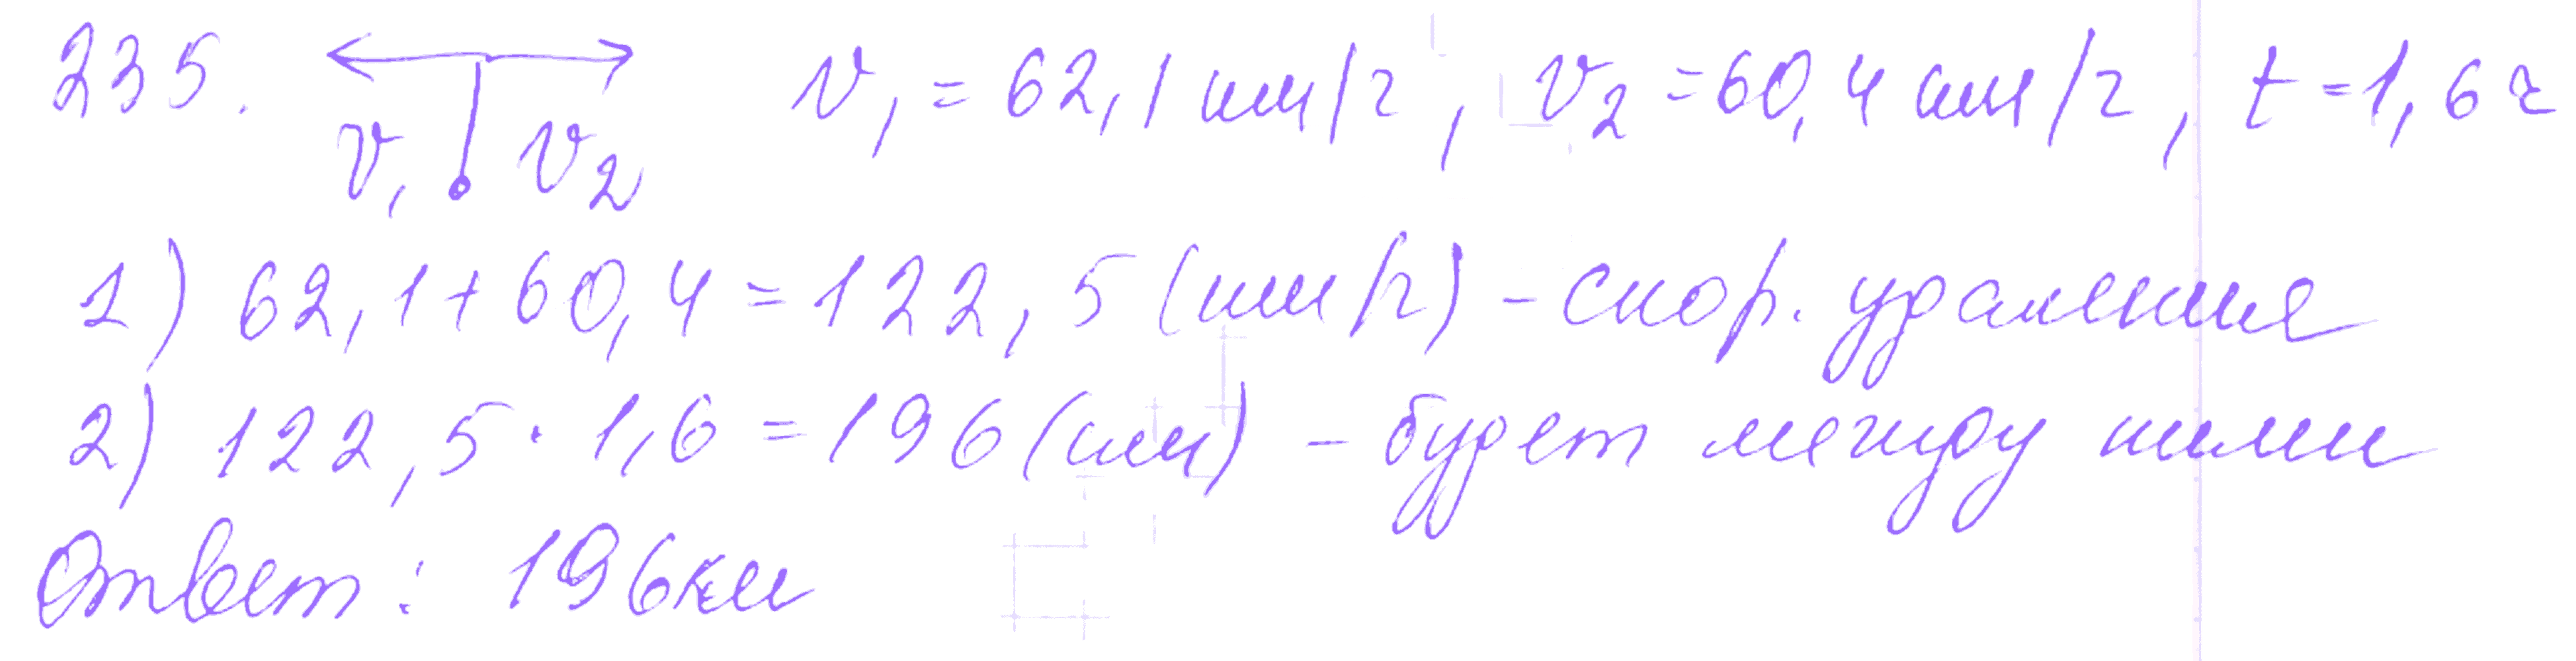 235. v₁ v₂ v₁ = 62,1 км/ч, v₂ = 60,4 км/ч, t = 1,6 ч
1) 62,1 + 60,4 = 122,5 (км/ч) - скор. удаления
2) 122,5 · 1,6 = 196 (км) - будет между ними
Ответ: 196 км